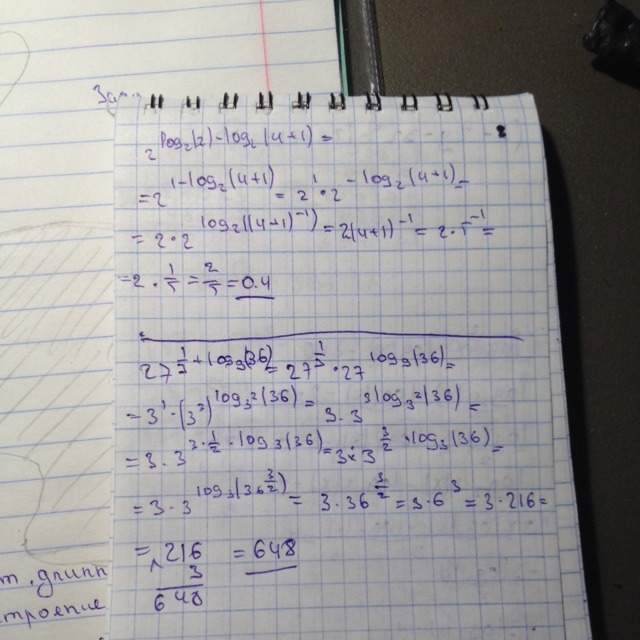 Зап
2^{log₂(2)-log₂(4+1)} =
= 2^{1-log₂(4+1)} = 2^1 · 2^{-log₂(4+1)} =
= 2 · 2^{log₂((4+1)^{-1})} = 2(4+1)^{-1} = 2 · 5^{-1} =
= 2 · 1/5 = 2/5 = 0.4
27^{1/3+log₉(36)} = 27^{1/3} · 27^{log₉(36)} =
= 3^1 · (3^3)^{log_{3^2}(36)} = 3 · 3^{3log_{3^2}(36)} =
= 3 · 3^{3·1/2·log₃(36)} = 3 · 3^{3/2·log₃(36)} =
= 3 · 3^{log₃(36^{3/2})} = 3 · 36^{3/2} = 3 · 6^3 = 3 · 216 =
= × 216 = 648
3
648
т, длинн
строение